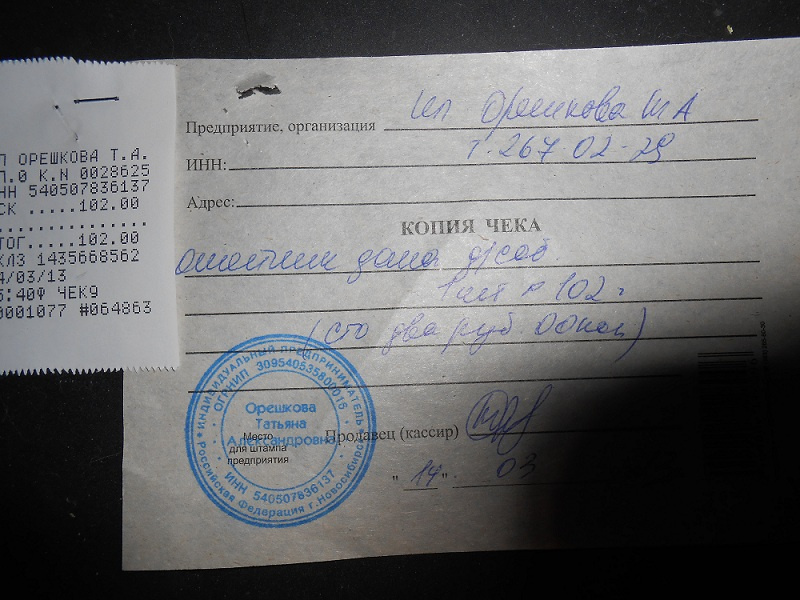 П ОРЕШКОВА Т.А.
П.0 К.N 0028625
НН 540507836137
СК .....102.00
...............
ТОГ.....102.00
КЛЗ 1435668562
4/03/13
5:40Ф ЧЕК9
0001077 #064863
Предприятие, организация ип Орешкова ТА
ИНН: т. 267-02-29
Адрес:
КОПИЯ ЧЕКА
ошейник для соб
1 шт 102
(сто два руб. 00 коп)
ИНДИВИДУАЛЬНЫЙ ПРЕДПРИНИМАТЕЛЬ
ОГРНИП 309540535800016
Орешкова
Татьяна
Александровна
ИНН 540507836137
Российская Федерация г.Новосибирск
Место
для штампа
предприятия
Продавец (кассир)
"14" 03